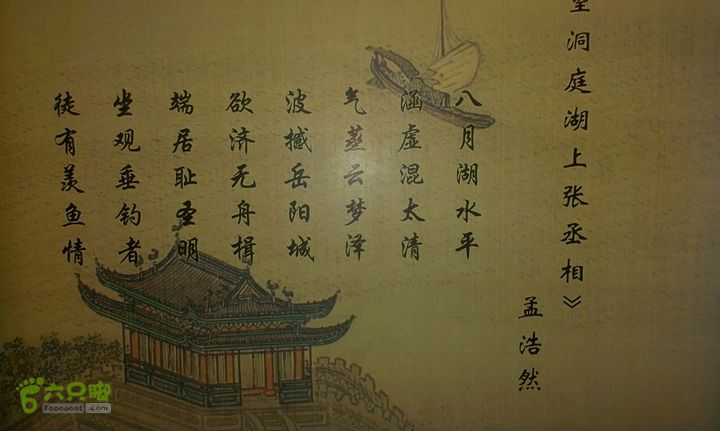 望洞庭湖上张丞相》
孟浩然
八月湖水平
涵虚混太清
气蒸云梦泽
波撼岳阳城
欲济无舟楫
端居耻圣明
坐观垂钓者
徒有羡鱼情
六只脚
Foooooot.com